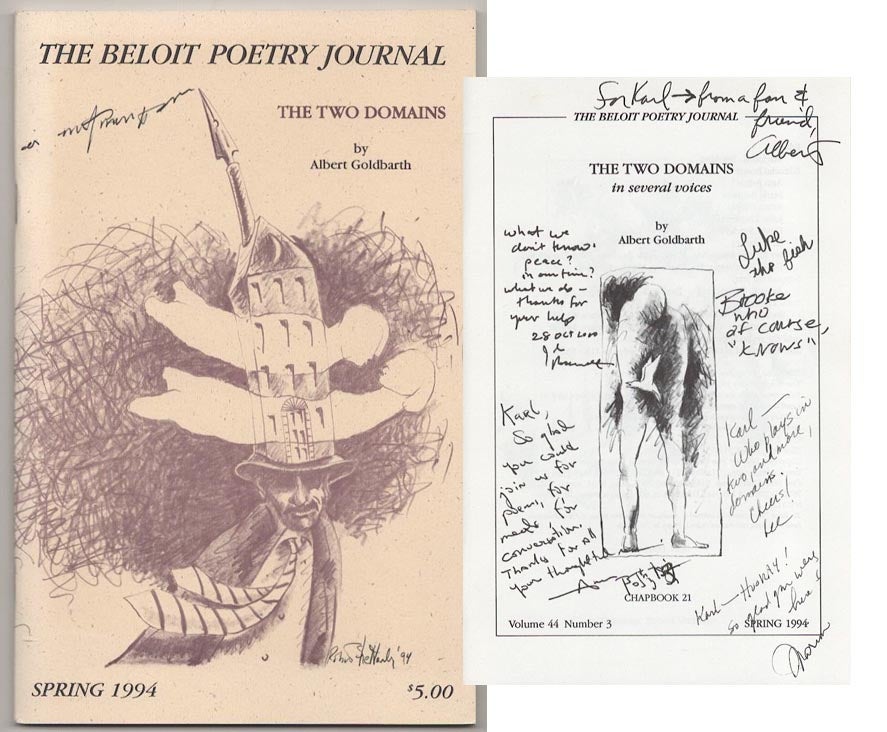 THE BELOIT POETRY JOURNAL
THE TWO DOMAINS
by
Albert Goldbarth
'94
SPRING 1994
$5.00
For Karl → from a fan &
friend,
Albert
THE BELOIT POETRY JOURNAL
THE TWO DOMAINS
in several voices
by
Albert Goldbarth
what we
don't know.
peace?
in our time?
what we do –
thanks for
your help
28 OCT 2000
Luke
the fish
Brooke
who
of course,
"knows"
Karl,
So glad
you could
join us for
poems, for
meals for
conversation.
Thanks for all
your thoughtful
Karl —
Who plays in
two, and more,
domains.
Cheers!
Lee
Karl — Hooray!
So glad you were
here!
CHAPBOOK 21
Volume 44 Number 3
SPRING 1994